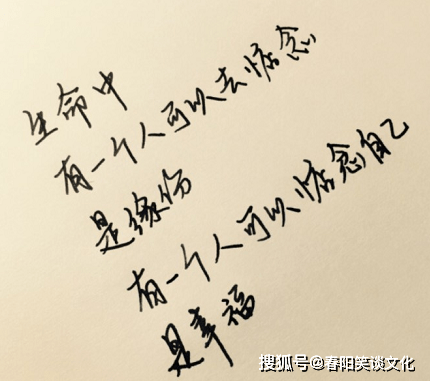 生命中
有一个人可以去惦念
是缘份
有一个人可以惦念自己
是幸福
搜狐号@春阳笑谈文化